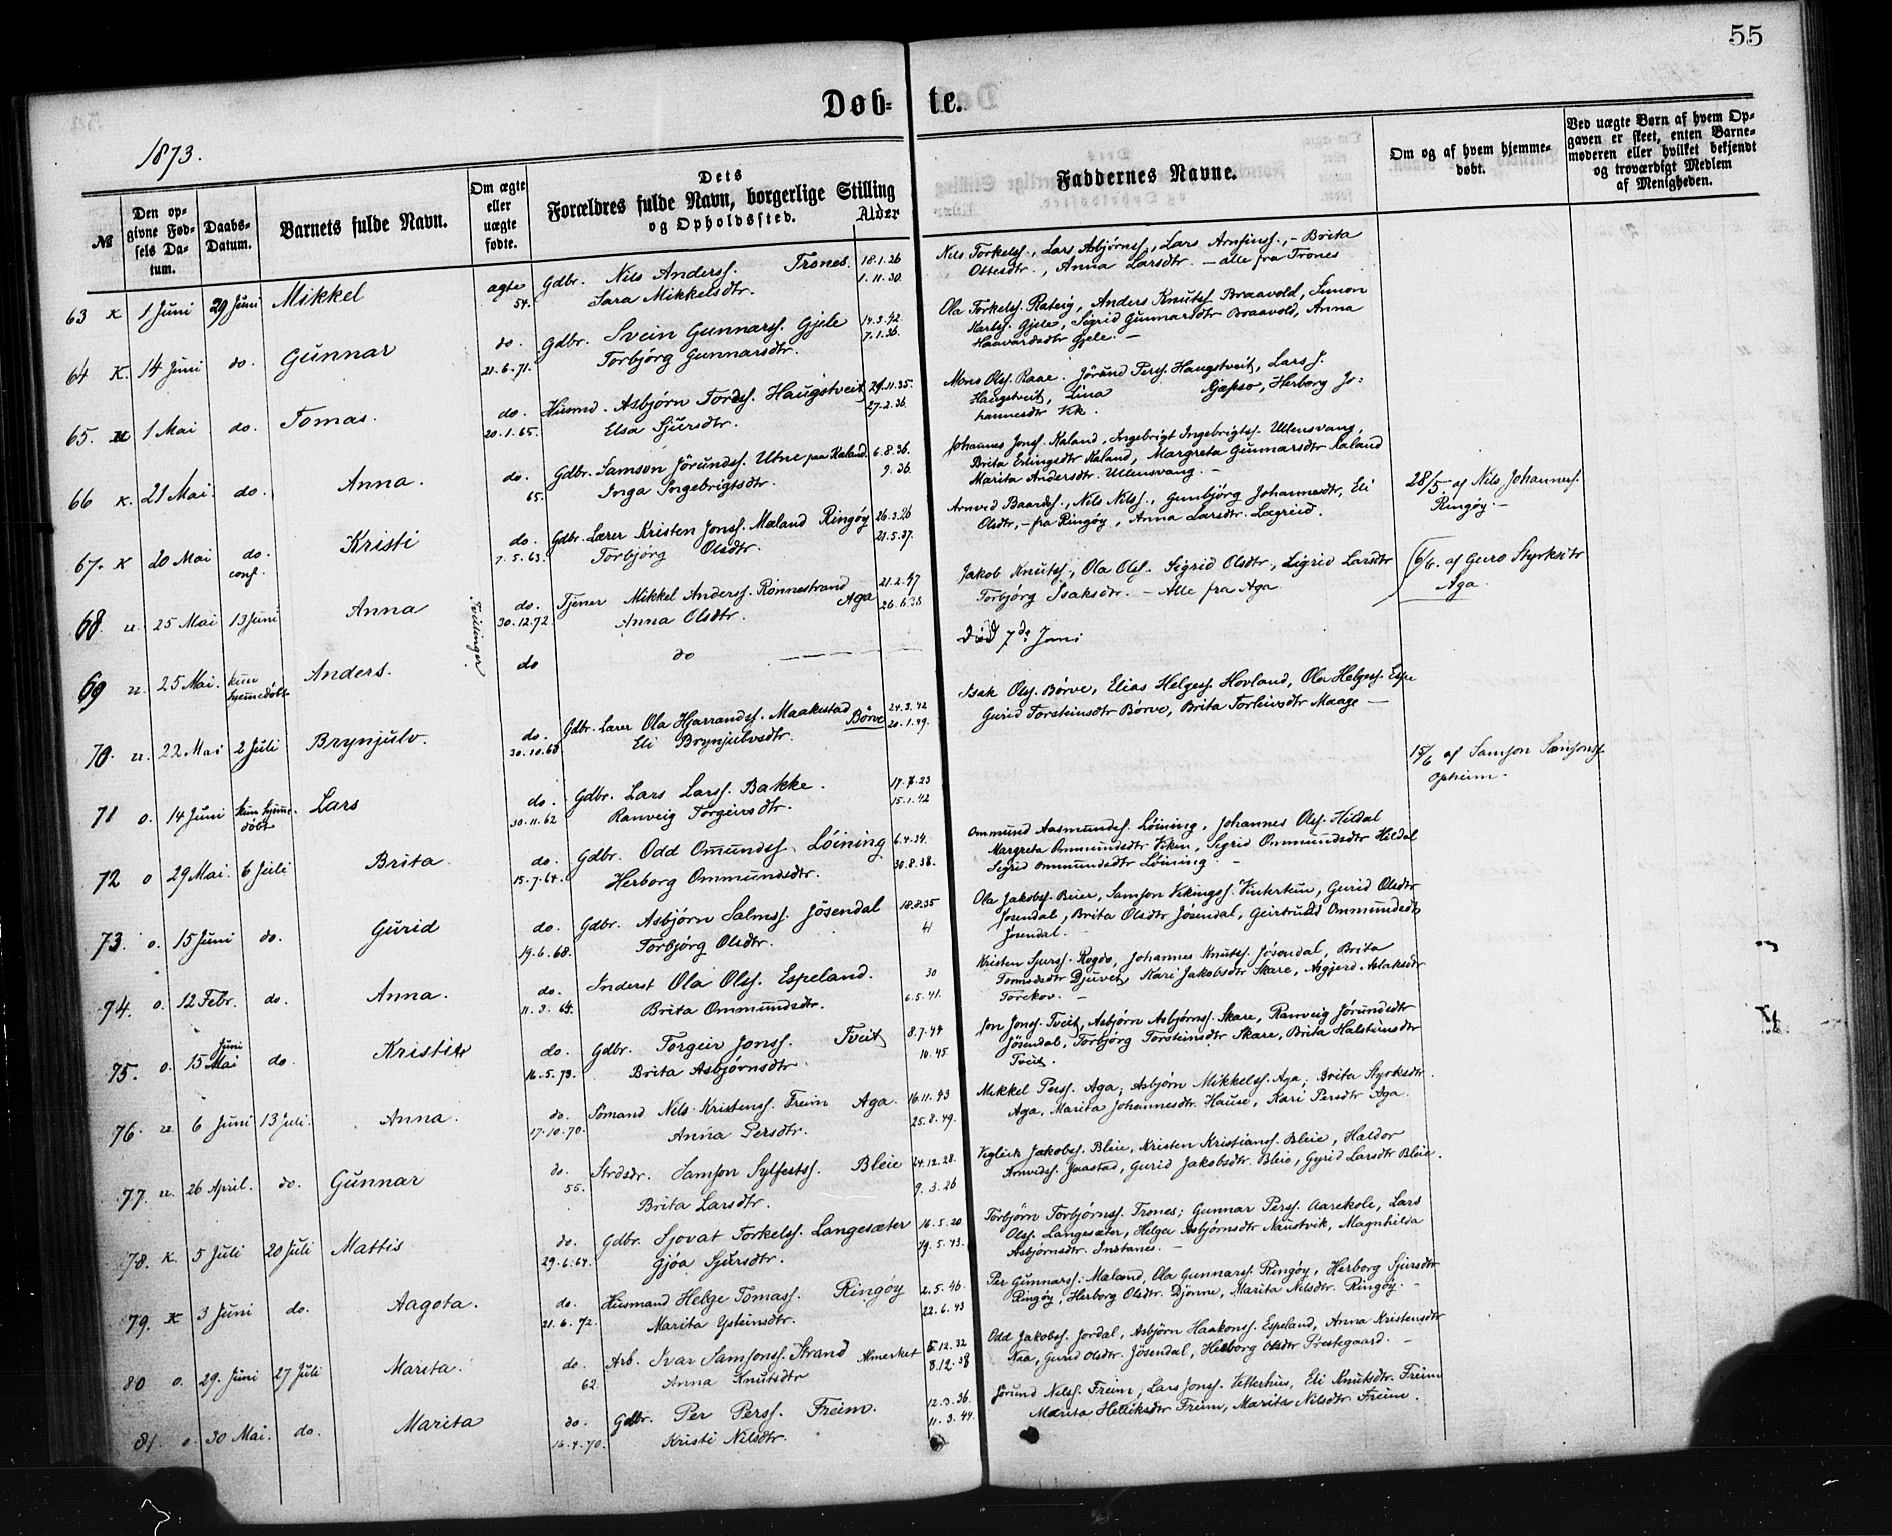 55
Døb- te.
1873.
№
Den op-
givne Fød-
sels Da-
tum.
Daabs-
Datum.
Barnets fulde Navn.
Om ægte
eller
uægte
fødte.
Dets
Forældres fulde Navn, borgerlige Stilling
og Opholdssted.
Alder
Faddernes Navne.
Om og af hvem hjemme-
døbt.
Ved uægte Børn af hvem Op-
gaven er skeet, enten Barne-
moderen eller hvilket bekjendt
og troværdigt Medlem
af Menigheden.
63 K 1 Juni 29 Juni Mikkel ægte Gdbr. Nils Anderss. Trones. 18.1.26 Nils Torkelss., Lars Asbjørnss., Lars Arnfinss., - Brita
54. Sara Mikkelsdtr. 1.11.30. Ottesdtr., Anna Larsdtr. - alle fra Trones
64 K. 14 Juni do. Gunnar do. Gdbr. Svein Gunnarss. Gjele 14.3.42 Ola Torkelss. Anders Knutss. Braavold, Simon
21.6.71. Torbjørg Gunnarsdtr. 7.1.36. Karlss. Gjele, Sigrid Gunnarsdtr Braavold, Anna
Haavardsdtr Gjele. -
65. 1 Mai do. Tomas. do. Husmd. Asbjørn Tordss. Haugstveit 29.11.35. Mons Olss. Raae. Jørund Perss. Haugstveit, Lars J.
20.1.65. Elsa Sjursdtr. 27.2.36. Haugstveit, Lina Gjøpsø, Herborg Jo:
hannesdtr Vik.
66 K. 21 Mai. do. Anna. do. Gdbr. Samson Jørundss. Utne paa Kaland. 6.8.36. Johannes Jonss. Kaland, Ingebrigt Ingebrigtss. Ullensvang,
65. Inga Ingebrigtsdtr. 9.36. Brita Erlingsdtr Kaland, Margreta Gunnarsdtr Kaland
Marita Andersdtr. Ullensvang. -
67. K 20 Mai do. Kristi do. Gdbr. Lærer Kristen Jonss. Mæland Ringøy 26.3.26 Arnved Baardss., Nils Nilss., Gunbjørg Johannesdtr, Eli 28/5 af Nils Johanness.
conf. 7.5.63. Torbjørg Olsdtr. 21.5.37. Olsdtr, - fra Ringøy, Anna Larsdtr. Lægreid. Ringøy. -
68. u. 25 Mai 13 Juni Anna do. Tjener Mikkel Anderss. Rønnestrand 21.2.47 Jakob Knutss., Ola Olss. Sigrid Olsdtr., Sigrid Larsdtr 6/6. af Guro Styrksdtr
Tvillinger 30.12.72 Anna Olsdtr. Aga 26.6.38 Torbjørg Isaksdtr. - Alle fra Aga Aga.
69 u. 25 Mai. kun Anders. do do Død 7de Juni
hjemmedøbt
70. u. 22 Mai 2 Juli Brynjulv. do. Gdbr. Lærer Ola Hjarrandss. Maakestad 24.3.42 Isak Olss. Børve, Elias Helgess. Hovland, Ola Helgess. Espe
30.10.68 Eli Brynjulvsdtr. Børve 20.1.49. Gurid Torsteinsdtr Børve, Brita Torleivsdtr Maage -
71 o. 14 Juni kun hjemme- Lars do. Gdbr. Lars Larss. Bakke. 17.7.23 15/6 af Samson Samsonss.
døbt 30.11.62 Ranveig Torgeirsdtr. 15.1.42 Opheim.
72 o 29 Mai. 6 Juli Brita. do. Gdbr. Odd Omundss. Løining 6.4.34. Ommund Aasmundss. Løining, Johannes Olss. Hildal
15.7.64. Herborg Ommundsdtr. 30.8.38. Margreta Ommundsdtr Viken, Sigrid Ommundsdtr Hildal
Sigrid Ommundsdtr Løining. -
73. o. 15 Juni do. Gurid do. Gdbr. Asbjørn Salmss. Jøsendal 18.8.35 Ola Jakobss. Beier, Samson Vikingss. Vintertun, Gurid Olsdtr
19.6.68. Torbjørg Olsdtr. 41 Jøsendal, Brita Olsdtr Jøsendal, Geirtrud Ommundsdtr
Jøsendal. -
74. o. 12 Febr. do. Anna. do. Inderst Ola Olss. Espeland. 30 Kristen Sjurss. Regde, Johannes Knutss. Jøsendal, Brita
11.3.65. Brita Ommundsdtr. 6.5.41. Tomasdtr Djuvet, Kari Jakobsdtr Skare, Asgjerd Aslaksdtr
75. o. 15 Juni Mai do. Kristi do. Gdbr. Torgeir Jonss. Tveit 8.7.44 Jon Jonss. Tveit, Asbjørn Asbjørnss. Skare, Ranveig Jørundsdtr
16.5.73. Brita Asbjørnsdtr. 10.45 Jøsendal, Torbjørg Torsteinsdtr Skare, Brita Halsteinsdtr
Tveit.
76. u. 6 Juni 13 Juli. Anna. do. Sømand Nils Kristenss. Freim Aga. 16.11.43 Mikkel Perss. Aga; Asbjørn Mikkelss. Aga; Brita Styrksdtr.
17.10.70. Anna Persdtr. 25.8.49. Aga, Marita Johannesdtr. Hause, Kari Persdtr Aga.
77. u. 26 April. do. Gunnar do. Strdsdr. Samson Sylfestss. Bleie 24.12.28. Vigleik Jakobss. Bleie, Kristen Kristianss. Bleie, Haldor
55. Brita Larsdtr. 9.3.26 Arnvedss. Jaastad, Gurid Jakobsdtr. Bleie, Gyrid Larsdtr Bleie.
78. K. 5 Juli 20 Juli Mattis do. Gdbr. Sjovat Torkelss. Langesæter 16.5.20. Torbjørn Torbjørnss. Trones; Gunnar Perss. Aarekole, Lars
29.6.64. Gjøa Sjursdtr. 19.5.43. Olss. Langesæter, Helga Asbjørnsdtr Naustvik, Magnhilda
Asbjørnsdtr. Instanes. -
79. K 3 Juni do. Aagota. do. Husmand Helge Tomass. Ringøy 2.5.46. Per Gunnarss. Mæland, Ola Gunnarss. Ringøy, Herborg Sjursdtr
21.6.72. Marita Ysteinsdtr. 22.6.43 Ringøy, Herborg Olsdtr. Djønne, Marita Nilsdtr. Ringøy. -
80 o. 29. Juni 27 Juli Marita. do. Arb. Ivar Samsonss. Strand Almerket 5.12.32 Odd Jakobss. Jordal, Asbjørn Haakonss. Espeland, Anna Kristensdtr
62. Anna Knutsdtr 8.12.38 Naa, Gurid Olsdtr. Jøsendal, Herborg Olsdtr Prestegaard. -
81. o. 30 Mai. do. Marita do. Gdbr. Per Perss. Freim. 12.3.36. Jørund Nilss. Freim; Lars Jonss. Vetterhus, Eli Knutsdtr. Freim
16.4.70. Kristi Nilsdtr. 11.3.44. Marita Helliksdtr Freim, Marita Nilsdtr. Freim.